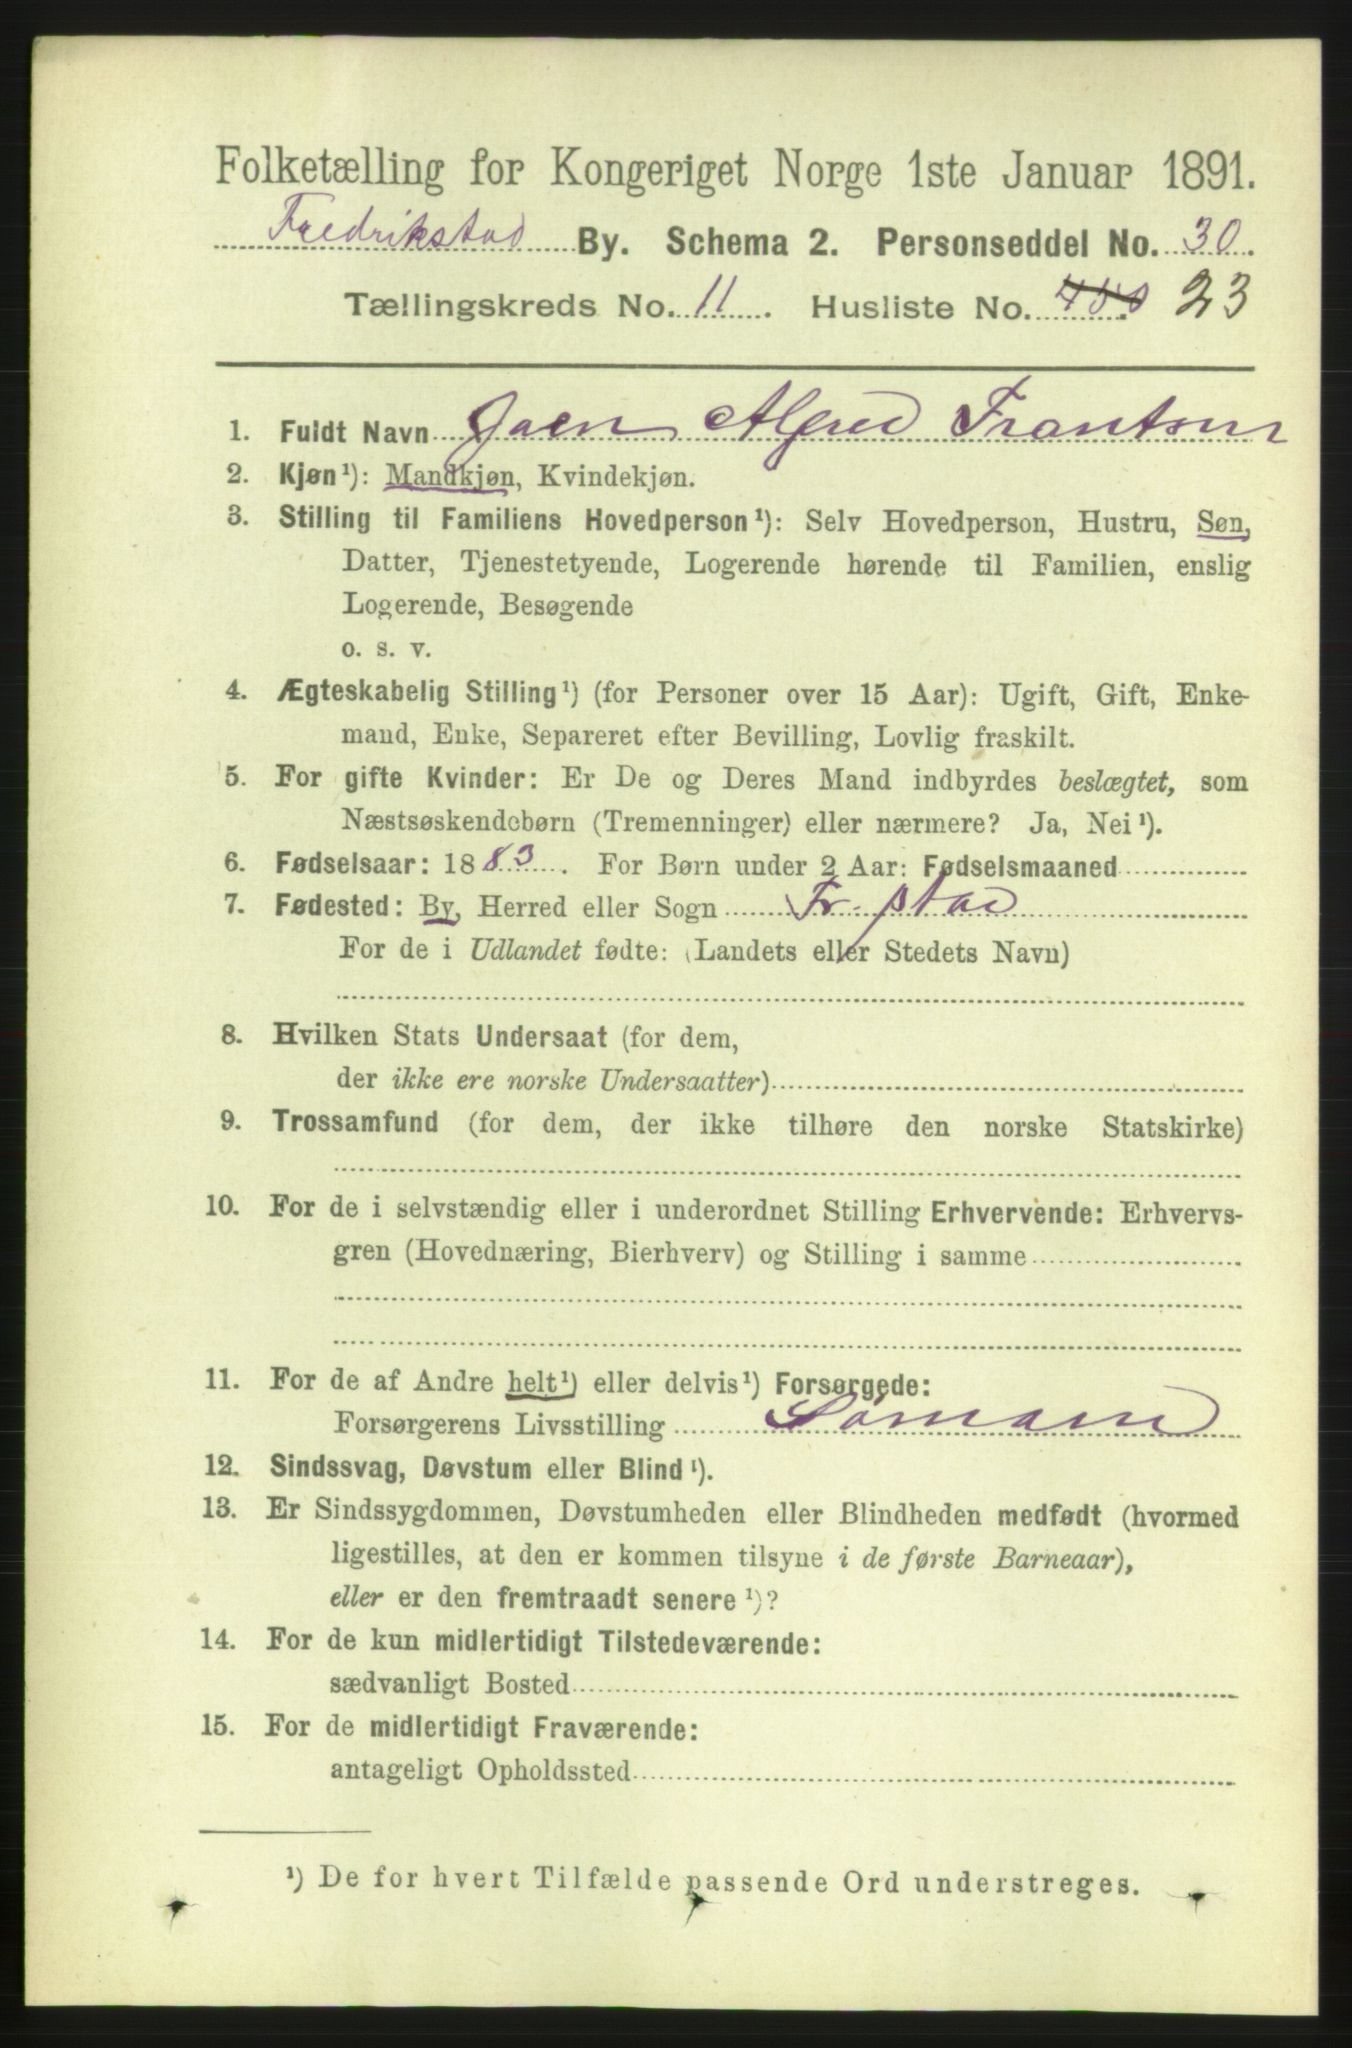 Folketælling for Kongeriget Norge 1ste Januar 1891.
Fredrikstad By. Schema 2. Personseddel No. 30.
Tællingskreds No. 11. Husliste No. 23
1. Fuldt Navn Alfred Frantsen
2. Kjøn¹): Mandkjøn, Kvindekjøn.
3. Stilling til Familiens Hovedperson¹): Selv Hovedperson, Hustru, Søn,
Datter, Tjenestetyende, Logerende hørende til Familien, enslig
Logerende, Besøgende
o. s. v.
4. Ægteskabelig Stilling¹) (for Personer over 15 Aar): Ugift, Gift, Enke-
mand, Enke, Separeret efter Bevilling, Lovlig fraskilt.
5. For gifte Kvinder: Er De og Deres Mand indbyrdes beslægtet, som
Næstsøskendebørn (Tremenninger) eller nærmere? Ja, Nei¹).
6. Fødselsaar: 1883. For Børn under 2 Aar: Fødselsmaaned
7. Fødested: By, Herred eller Sogn Fr.stad
For de i Udlandet fødte: (Landets eller Stedets Navn)
8. Hvilken Stats Undersaat (for dem,
der ikke ere norske Undersaatter)
9. Trossamfund (for dem, der ikke tilhøre den norske Statskirke)
10. For de i selvstændig eller i underordnet Stilling Erhvervende: Erhvervs-
gren (Hovednæring, Bierhverv) og Stilling i samme
11. For de af Andre helt¹) eller delvis¹) Forsørgede:
Forsørgerens Livsstilling Sømand
12. Sindssvag, Døvstum eller Blind¹).
13. Er Sindssygdommen, Døvstumheden eller Blindheden medfødt (hvormed
ligestilles, at den er kommen tilsyne i de første Barneaar),
eller er den fremtraadt senere¹)?
14. For de kun midlertidigt Tilstedeværende:
sædvanligt Bosted
15. For de midlertidigt Fraværende:
antageligt Opholdssted
¹) De for hvert Tilfælde passende Ord understreges.